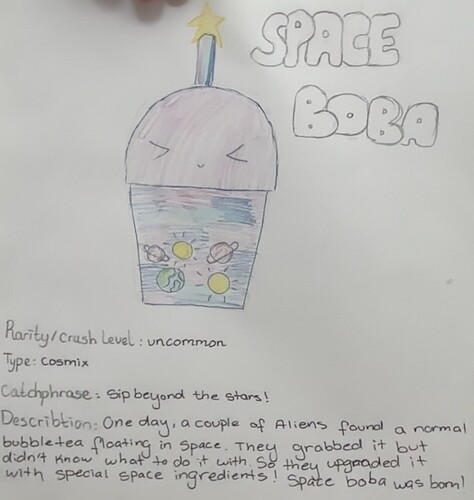 SPACE
BOBA
Rarity/Crush Level: uncommon
Type: Cosmix
Catchphrase: Sip beyond the stars!
Describtion: One day, a couple of Aliens found a normal
bubbletea floating in space. They grabbed it but
didn't know what to do it with. So they upgraded it
with special space ingredients! Space boba was born!